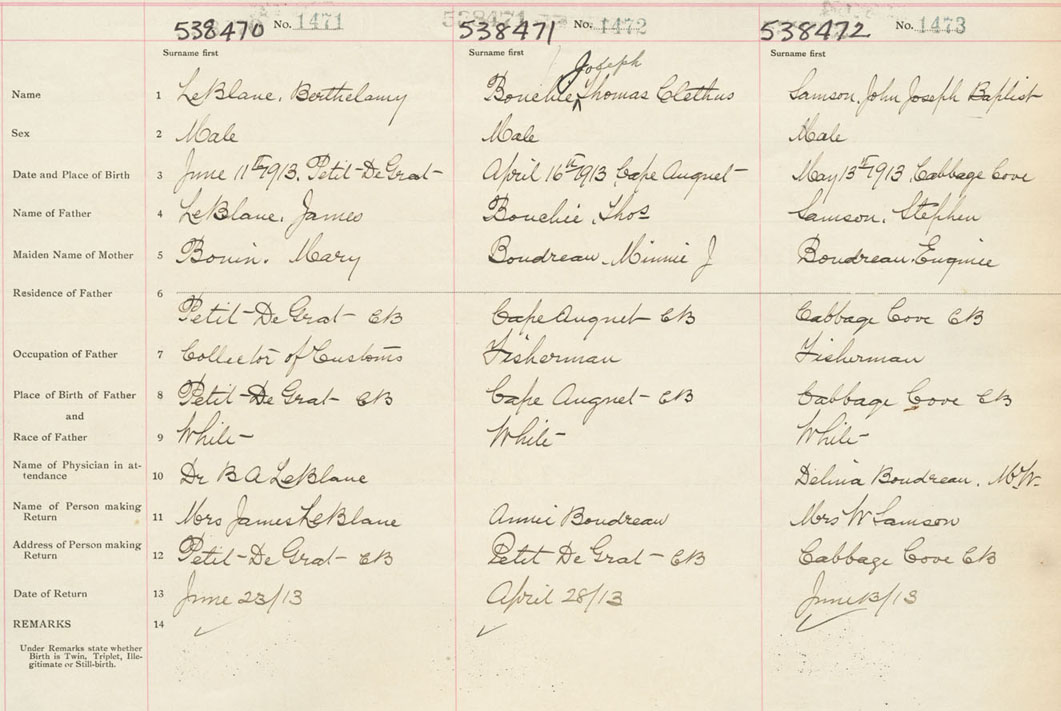 538470 No. 1471 538471 No. 1472 538472 No. 1473
Surname first Surname first Surname first
Joseph
Name 1 LeBlanc, Berthelamy Bouchie, Thomas Clethus Samson, John Joseph Baptist
Sex 2 Male Male Male
Date and Place of Birth 3 June 11th 1913, Petit-De Grat- April 16th 1913, Cape Auguet- May 13th 1913, Cabbage Cove
Name of Father 4 LeBlanc, James Bouchie, Thos Samson, Stephen
Maiden Name of Mother 5 Bonin. Mary Boudreau, Minnie J Boudreau, Euginie
Residence of Father 6
Petit-De Grat- CB Cape Auguet CB Cabbage Cove CB
Occupation of Father 7 Collector of Customs Fisherman Fisherman
Place of Birth of Father 8 Petit-De Grat- CB Cape Auguet- CB Cabbage Cove CB
and
Race of Father 9 White- White- White-
Name of Physician in at-
tendance 10 Dr B A LeBlanc Delina Boudreau, M.W.
Name of Person making
Return 11 Mrs James LeBlanc Annie Boudreau Mrs W Samson
Address of Person making
Return 12 Petit-De Grat- CB Petit De Grat- CB Cabbage Cove CB
Date of Return 13 June 23/13 April 28/13 June 13/13
REMARKS 14
Under Remarks state whether
Birth is Twin, Triplet, Ille-
gitimate or Still-birth.